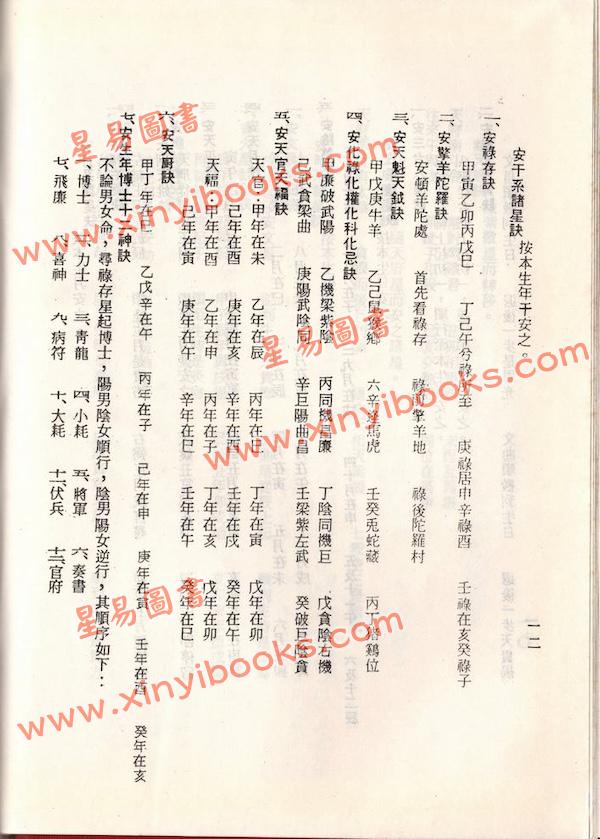 一二
安干系諸星訣 按本生年干安之。
一、安祿存訣
甲寅乙卯丙戊巳 丁己午兮祿所至 庚祿居申辛祿酉 壬祿在亥癸祿子
二、安擎羊陀羅訣
安頓羊陀處 首先看祿存 祿前擎羊地 祿後陀羅村
三、安天魁天鉞訣
甲戊庚牛羊 乙己鼠猴鄉 六辛逢馬虎 壬癸兎蛇藏 丙丁猪鷄位
四、安化祿化權化科化忌訣
甲廉破武陽 乙機梁紫陰 丙同機昌廉 丁陰同機巨 戊貪陰右機
己武貪梁曲 庚陽武陰同 辛巨陽曲昌 壬梁紫左武 癸破巨陰貪
五、安天官天福訣
天官：甲年在未 乙年在辰 丙年在巳 丁年在寅 戊年在卯
己年在酉 庚年在亥 辛年在酉 壬年在戌 癸年在午
天福：甲年在酉 乙年在申 丙年在子 丁年在亥 戊年在卯
己年在寅 庚年在午 辛年在巳 壬年在午 癸年在巳
六、安天厨訣
甲丁年在巳 乙戊辛在午 丙年在子 己年在申 庚年在寅 壬年在酉 癸年在亥
七、安生年博士十二神訣
不論男女命，尋祿存星起博士，陽男陰女順行，陰男陽女逆行，其順序如下：
一、博士 二、力士 三、青龍 四、小耗 五、將軍 六、奏書
七、飛廉 八、喜神 九、病符 十、大耗 十一、伏兵 十二、官府
星易圖書
www.xinyibooks.com
星易圖書
www.xinyibooks.com
星易圖書
www.xinyibooks.com